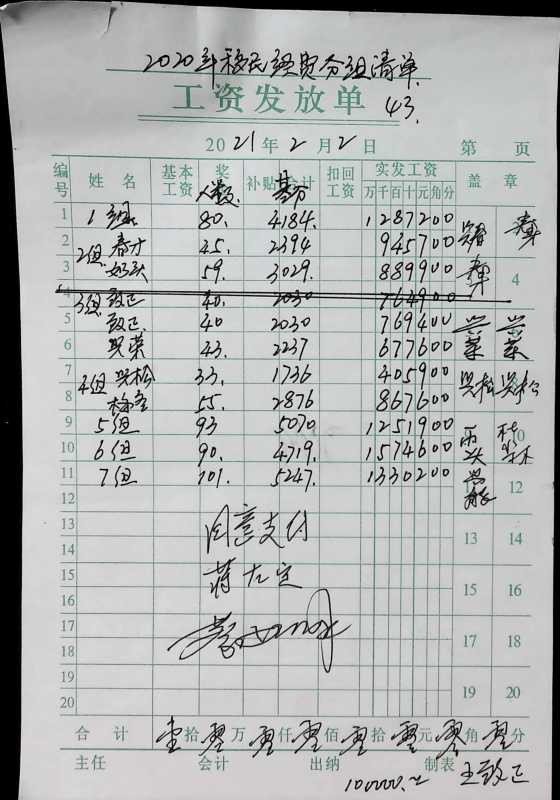 2020年移民经费分组清单
工资发放单 43.
2021年2月2日 第 页
编号 姓名 基本工资 奖 人数 补贴 合计 基分 扣回工资 实发工资 万千百十元角分 盖章
1 1组 80. 4184. 1287200
2 2组 春才 45. 2394 945700
3 59. 3029. 889900 4
4 3组 致正 40. 2030 764900
5 致正 40 2030 769400
6 兴荣 43. 2237 677600 兴荣 兴荣
7 4组 兴松 33. 1736 405900 兴松 兴松
8 55. 2876 867600
9 5组 93 5070 1251900 10
10 6组 90. 4719. 1574600
11 7组 101. 5247. 1330200 12
12
13 同意支付 13 14
14
15 15 16
16
17 17 18
18
19 19 20
20
合计 壹拾零万零仟零佰零拾零元零角零分
主任 会计 出纳 制表 王致正
100000.00